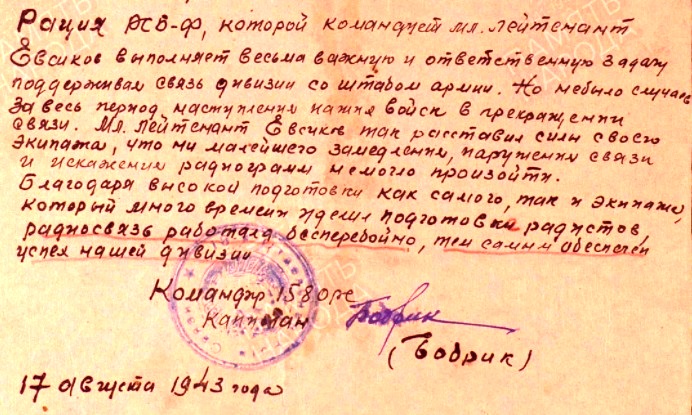 Рация РСБ-Ф, которой командует мл. лейтенант
Евсиков выполняет весьма важную и ответственную задачу
поддерживая связь дивизии со штабом армии. Но небыло случаев
За весь период наступления наших войск в прекращении
связи. Мл. лейтенант Евсиков так расставил силы своего
экипажа, что ни малейшего замедления, нарушения связи
и искажения радиограмм немогло произойти.
Благодаря высокой подготовки как самого, так и экипажа,
который много времени уделил подготовки радистов,
радиосвязь работала бесперебойно, тем самым обеспечен
успех нашей дивизии
Командир 158 орс
Капитан Бобрик
(Бобрик)
17 августа 1943 года
ПАМЯТЬ
НАРОДА